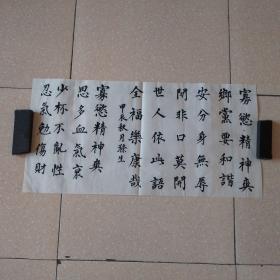 寡慾精神爽
鄉黨要和諧
安分身無辱
閒非口莫開
世人依此語
全福樂康哉
甲辰秋月
寡慾精神爽
思多血氣衰
少杯不亂性
忍氣勉傷財